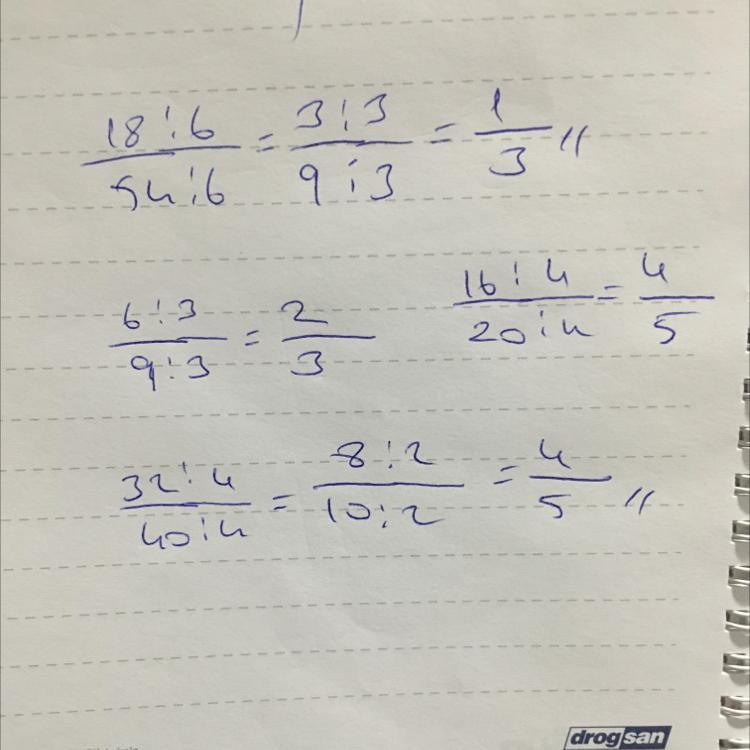 18:6/54:6 = 3:3/9:3 = 1/3 //
6:3/9:3 = 2/3
16:4/20:4 = 4/5
32:4/40:4 = 8:2/10:2 = 4/5 //
drogsan